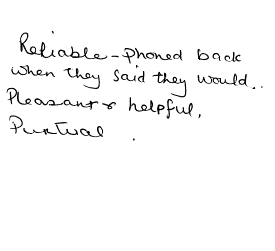 Reliable - phoned back
when they said they would..
Pleasant & helpful,
Puntual .